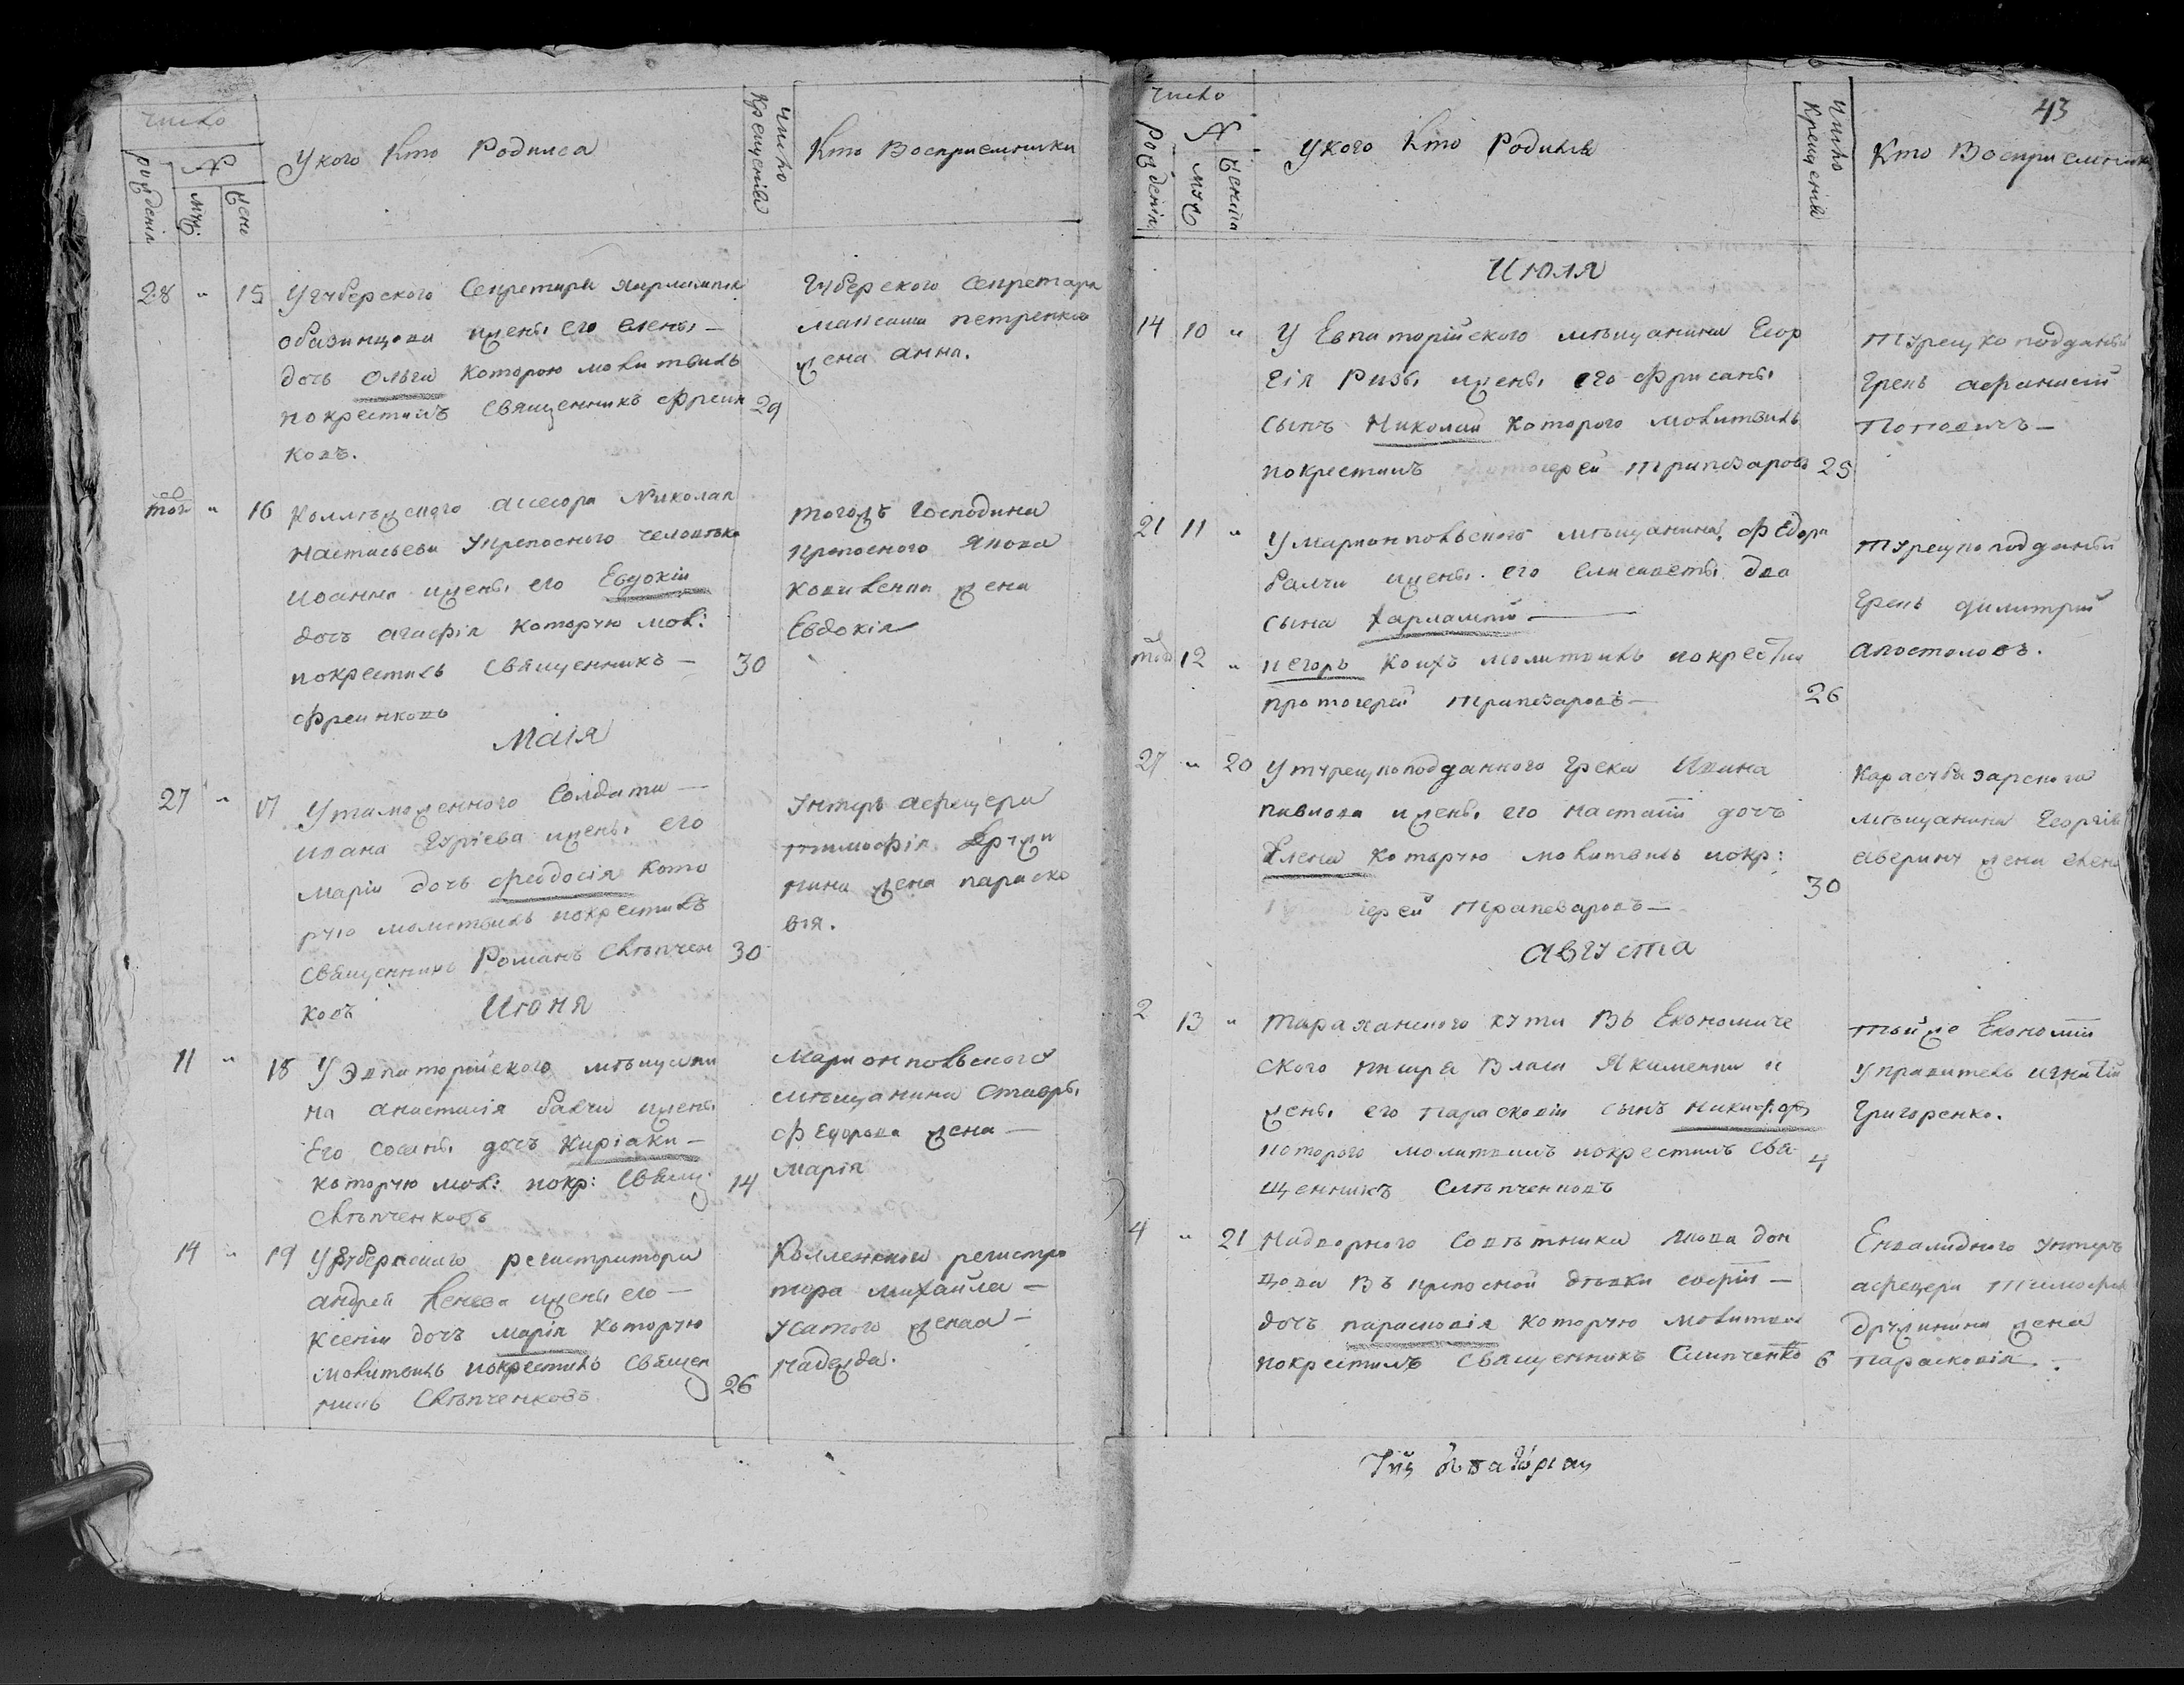 число
рожденія
№
муж:
жен:
У кого кто Родился
число Крещенія
Кто Восприемники
28 " 15 У губерского Секретаря
жены его елены —
дочь Ольга которою молитвилъ
покрестилъ Священникъ Слѣпчен 29
ковъ.
Губерского Секретара
Максима петренка
жена анна.
той " 16 Коллѣжского асесора Николая
Настасьева Крепосного человѣка
иоанна жены его Евдокіи
дочь агафія которую мол:
покрестилъ Священникъ — 30
тогожъ Господина
крепосного Якова
Коваленка жена
Евдокія
Маія
27 " 17 У таможенного Солдата —
ивана Гуріева жены его
маріи дочь феодосія кото
рую молитвилъ покрестилъ
Священникъ Романъ Слѣпчен 30
ковъ
унтеръ афицера
тимофія
жена параско
вія.
Июня
11 " 18 У Эвпаторийского мѣщани
на анастасія балчи жены
Его дочъ Киріаки —
которую мол: покр: Свящ: 14
Слѣпченковъ
Марионполского
мѣщанина Ставры
федорова жена —
Марія
14 " 19 У Губернского регистратора
андрея жены его —
Ксеніи дочъ марія которую
молитвилъ покрестилъ Священ 26
никъ Слѣпченковъ.
Коллежского регистра
тора михайла —
усатого жена —
надежда.
43
число
рожденія
№
муж
женска
У кого кто Родился
Число Крещенія
Кто Восприемники
Июля
14 10 " У Евпаторійского мѣщанина Геор
гія Ризы жены его фрисаны
сынъ Николай которого молитвилъ
покрестилъ протоіерей Трапезаровъ 25
Турецкоподданый
Грекъ афанасій
Поповичъ —
21 11 " У марионполского мѣщанина федора
балчи жены его елисаветы два
сына Харлампій —
той 12 " и егоръ коихъ молитвилъ покрестил
протоіерей Трапезаровъ — 26
Турецкоподданый
Грекъ димитрий
апостоловъ.
27 " 20 У турецкоподданного Грека Ивана
павлова жены его настасіи дочъ
Елена которую молитвилъ покр: 30
протоіерей Трапезаровъ —
Карасубазарского
мѣщанина Георгія
аверину жена елена
Августа
2 13 " Тараханского кута Въ Економиче
ского Власа Якименка и
жены его Парасковіи сынъ никифоръ
которого молитвилъ покрестилъ Свя 4
щенникъ Слѣпченковъ
Тойже Економіи
Управитель игнатій
Григоренко.
4 " 21 Надворного Совѣтника Якова дон
цова въ крепосной дѣвки софіи —
дочъ парасковія которую молитвил
покрестилъ Священникъ Слипченко 6
Енвалидного унтеръ
афецера Тимофея
жена
Парасковія. —